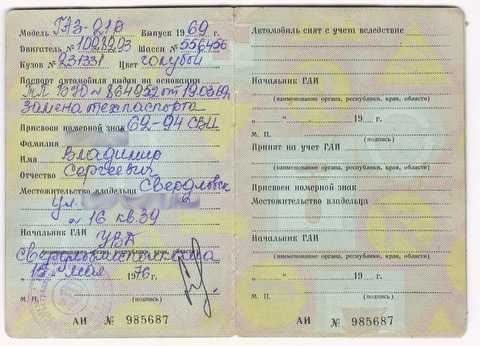 Модель № ГАЗ-21В Выпуск 1969 г.
Двигатель № Шасси № 556456
Кузов № 231331 Цвет голубой
Паспорт автомобиля выдан на основании
864952 от 19.03.69
Замена техпаспорта
Присвоен номерной знак 62-94 СВИ
Фамилия
Имя Владимир
Отчество Сергеевич
Местожительство владельца Свердловск
ул.
№ 16 кв. 39
Начальник ГАИ УВД
мая 1976 г.
М. П. (подпись)
АИ № 985687
Автомобиль снят с учета вследствие
Начальник ГАИ
(наименование органа, республики, края, области)
„ “ 19 г.
М. П. (подпись)
Принят на учет ГАИ
(наименование органа, республики, края, области)
Присвоен номерной знак
Местожительство владельца
Начальник ГАИ
(наименование органа, республики, края, области)
„ “ 19 г.
М. П. (подпись)
АИ № 985687